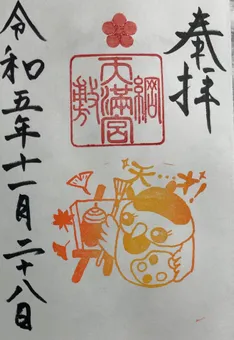 奉拝
綱敷
天満宮
令和五年十一月二十八日